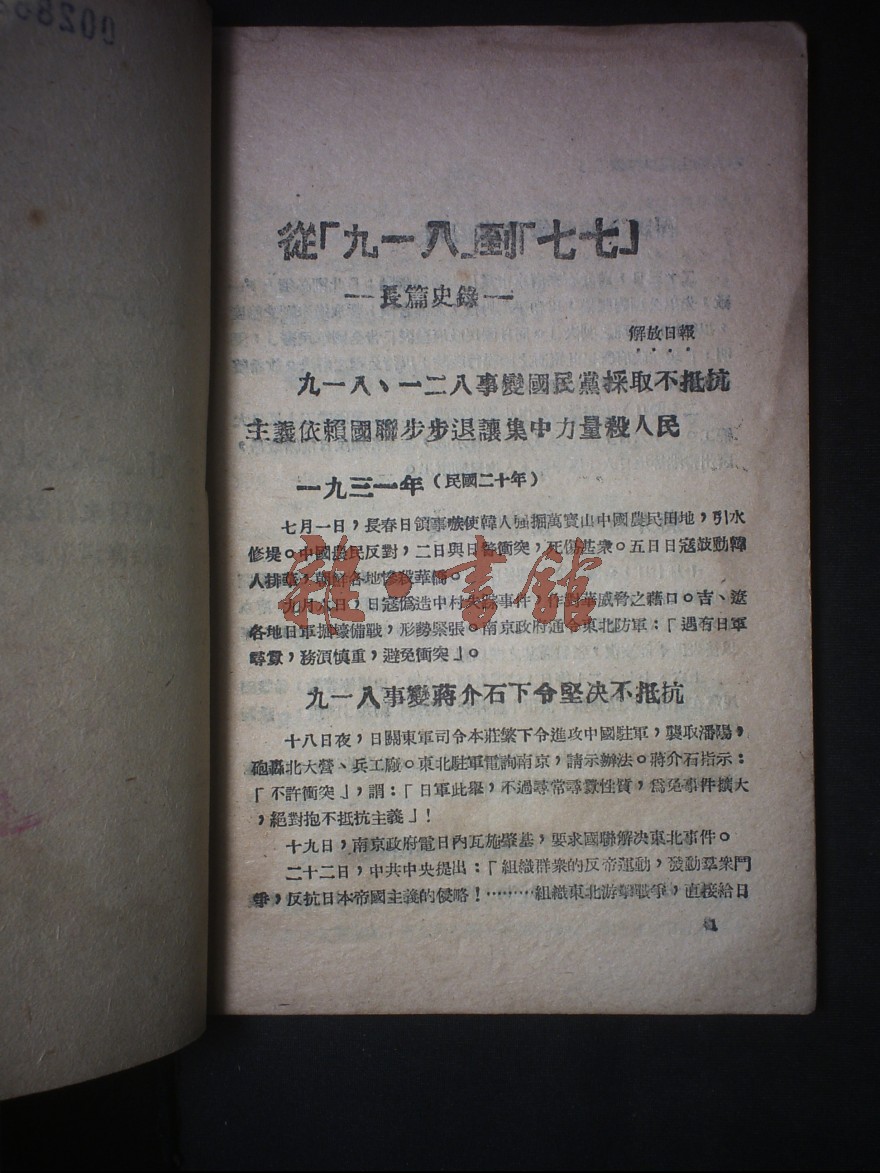 從「九一八」到「七七」
—長篇史錄—
解放日報
九一八、一二八事變國民黨採取不抵抗
主義依賴國聯步步退讓集中力量殺人民
一九三一年(民國二十年)
七月一日,長春日領事嗾使韓人强掘萬寶山中國農民田地,引水
修堤。中國農民反對,二日與日警衝突,死傷甚衆。五日日寇鼓動韓
人排華,朝鮮各地慘殺華僑。
九月六日,日寇僞造中村失踪事件,作對華威脅之藉口。吉、遼
各地日軍掘壕備戰,形勢緊張。南京政府通令東北防軍:「遇有日軍
尋釁,務須慎重,避免衝突」。
九一八事變蔣介石下令堅決不抵抗
十八日夜,日關東軍司令本莊繁下令進攻中國駐軍,襲取瀋陽,
砲轟北大營、兵工廠。東北駐軍電詢南京,請示辦法。蔣介石指示:
「不許衝突」,謂:「日軍此舉,不過尋常尋釁性質,爲免事件擴大
,絕對抱不抵抗主義」!
十九日,南京政府電日內瓦施肇基,要求國聯解決東北事件。
二十二日,中共中央提出:「組織群衆的反帝運動,發動羣衆鬥
爭,反抗日本帝國主義的侵略!………組織東北游擊戰爭,直接給日
1
雜·書館